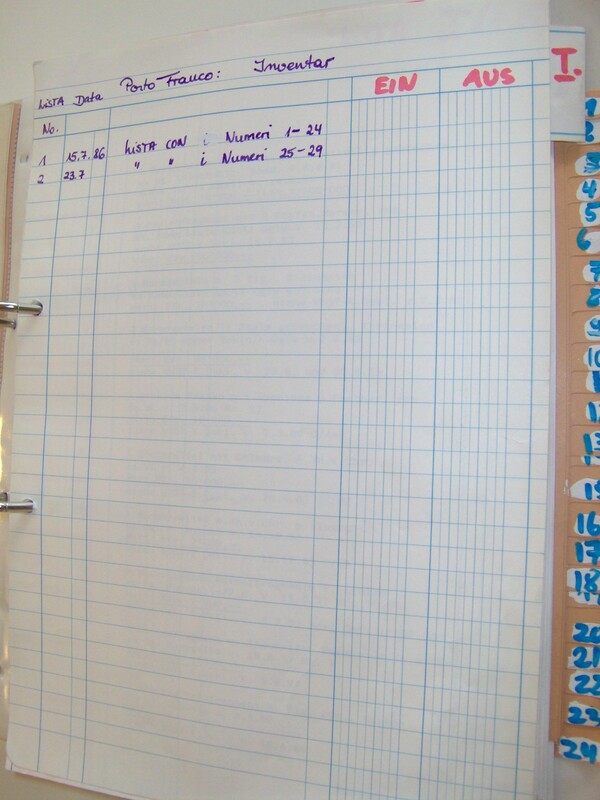 Porto Franco: Inventar
LiSTA Data
No.
EIN AUS
I.
1 15.7.86 LiSTA CON i Numeri 1-24
2 23.7 " " i Numeri 25-29
1
2
3
4
5
6
7
8
9
10
12
13
15
16
17
18
20
21
22
23
24